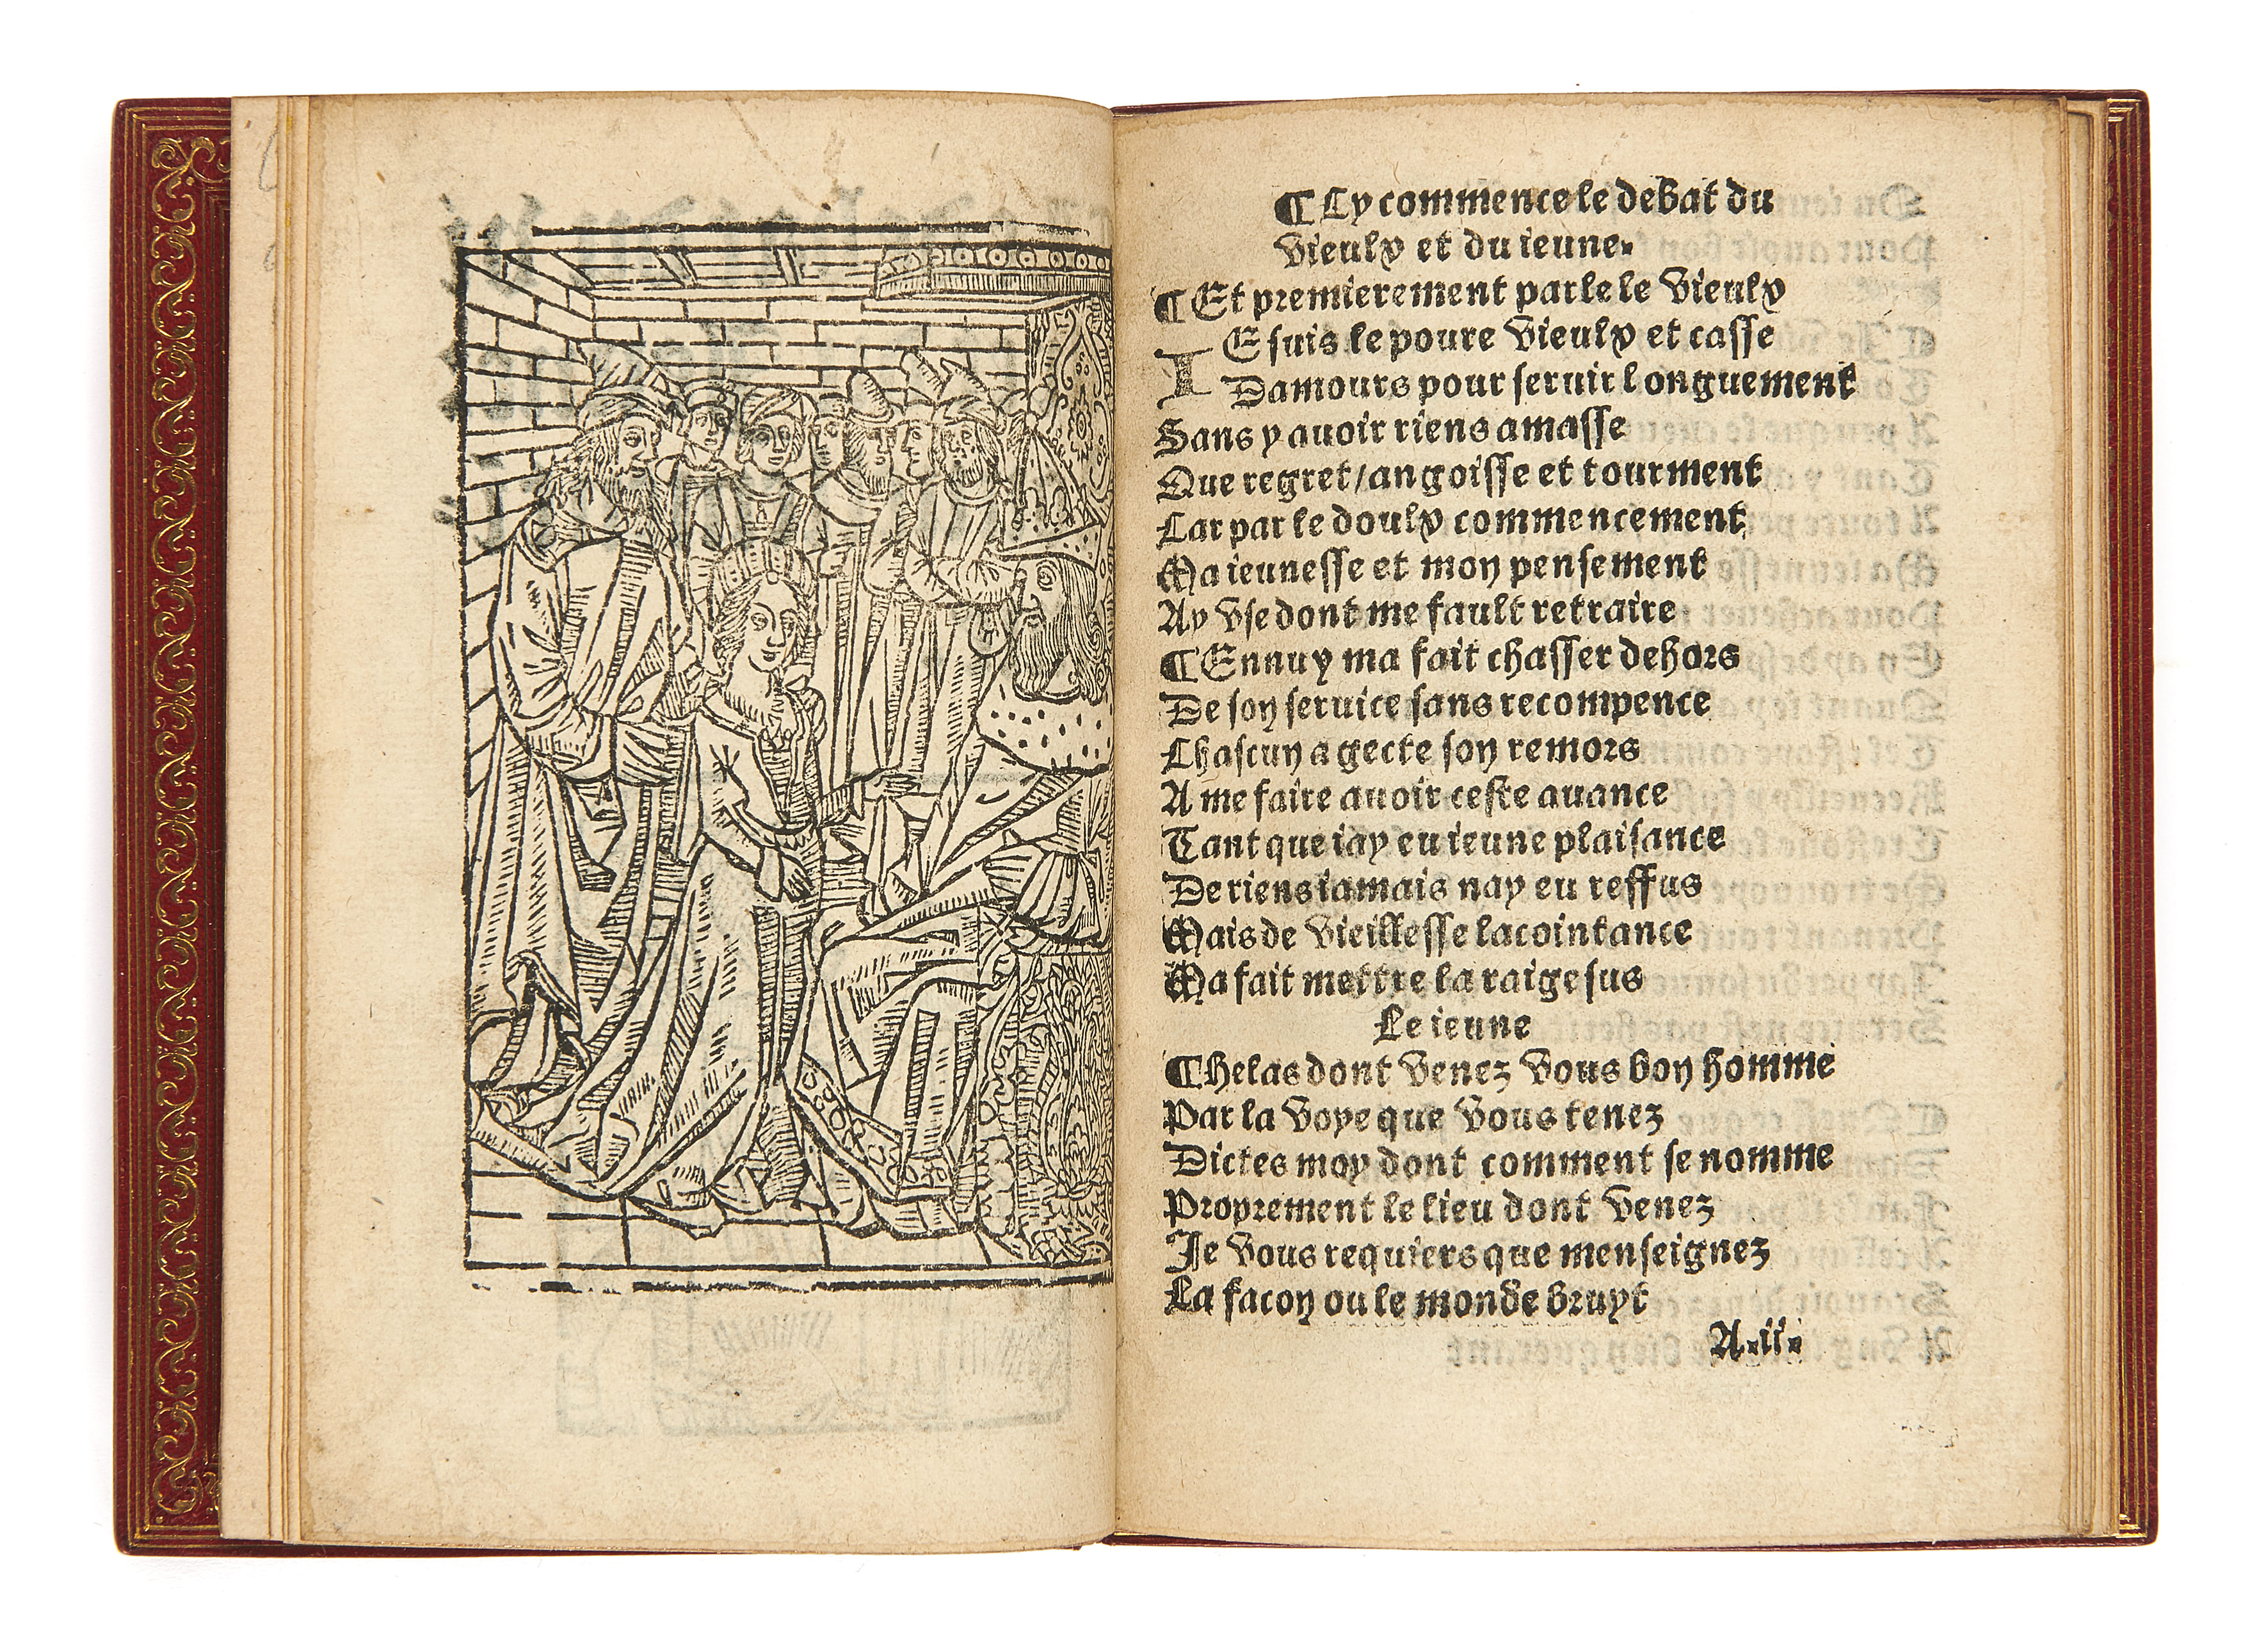 ¶ Cy commence le debat du
vieulx et du ieune.
¶ Et premierement parle le vieulx
IE suis le poure vieulx et casse
Damours pour seruir longuement
Sans y auoir riens amasse
Que regret/angoisse et tourment
Car par le doulx commencement
Ma ieunesse et mon pensement
Ay vse dont me fault retraire
¶ Ennuy ma fait chasser dehors
De son seruice sans recompence
Chascun a gecte son remors
A me faire auoir ceste auance
Tant que iay eu ieune plaisance
De riens iamais nay eu reffus
Mais de vieillesse lacointance
Ma fait mettre la raige sus
Le ieune
¶ helas dont venez vous bon homme
Par la voye que vous tenez
Dictes moy dont comment se nomme
Proprement le lieu dont venez
Je vous requiers que menseignez
La facon ou le monde bruyt
A.ii.